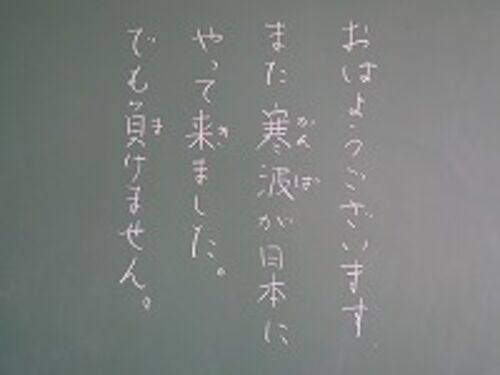 おはようございます
また寒波が日本に
やって来ました。
でも負けません。
かんぱ
き
ま